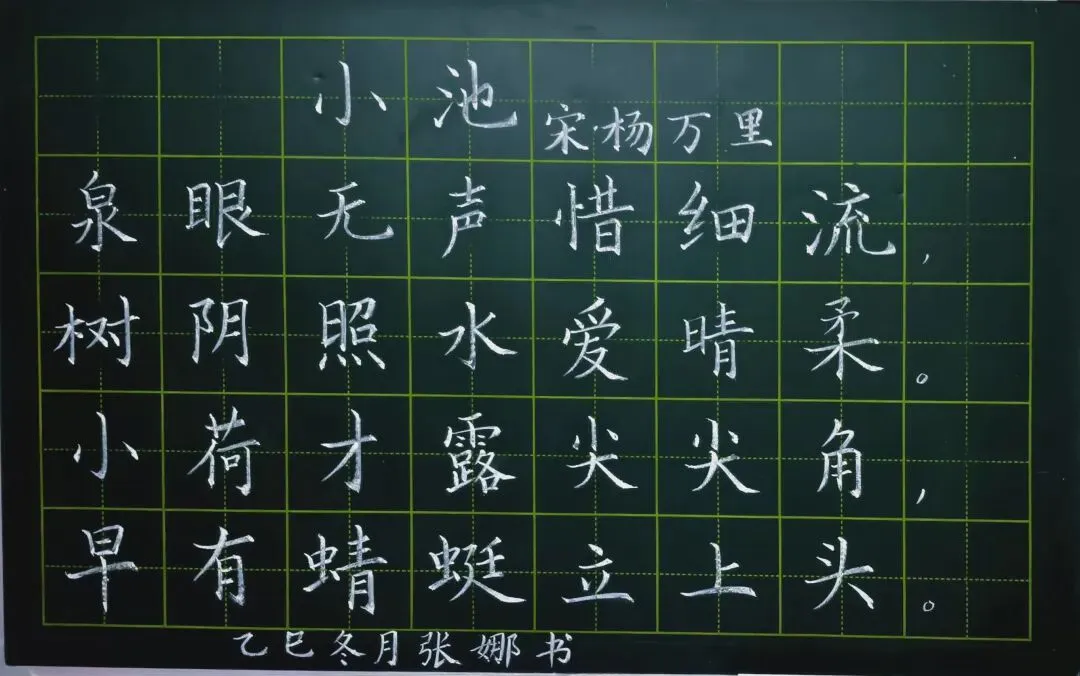 小池 宋·杨万里
泉眼无声惜细流，
树阴照水爱晴柔。
小荷才露尖尖角，
早有蜻蜓立上头。
乙巳冬月张娜书